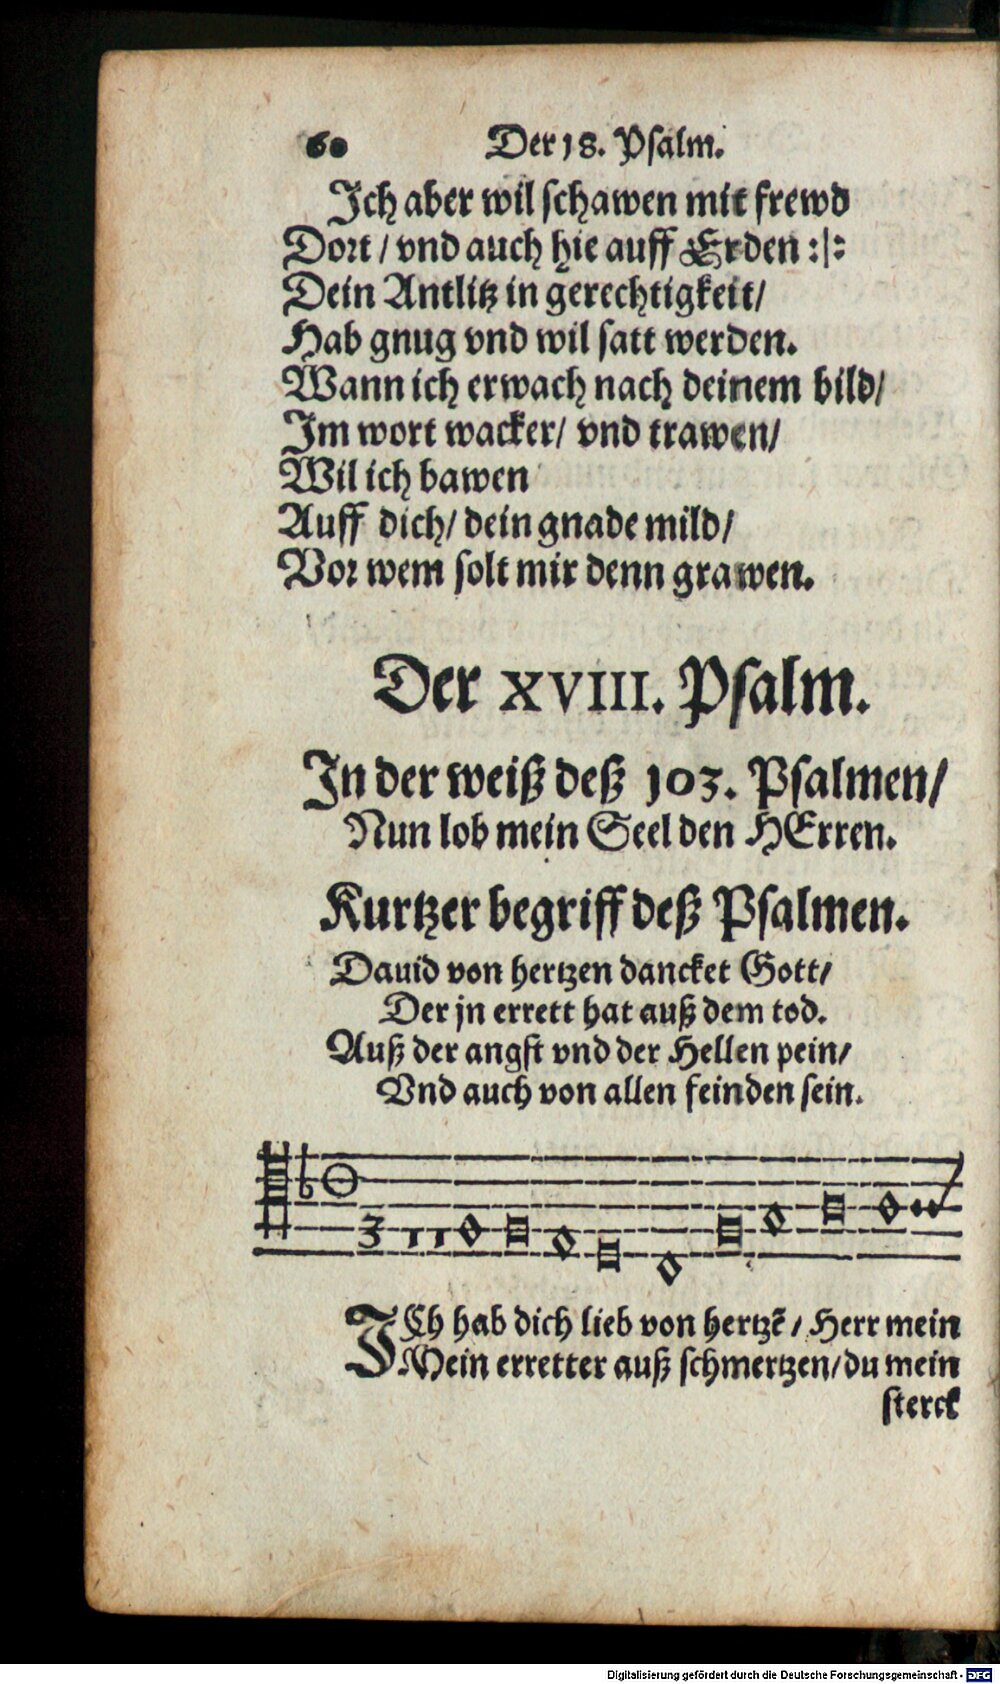 60 Der 18. Psalm.
Ich aber wil schawen mit frewd
Dort / vnd auch hie auff Erden :|:
Dein Antlitz in gerechtigkeit /
Hab gnug vnd wil satt werden.
Wann ich erwach nach deinem bild /
Im wort wacker / vnd trawen /
Wil ich bawen
Auff dich / dein gnade mild /
Vor wem solt mir denn grawen.
Der XVIII. Psalm.
In der weiß deß 103. Psalmen /
Nun lob mein Seel den HErren.
Kurtzer begriff deß Psalmen.
Dauid von hertzen dancket Gott /
Der jn errett hat auß dem tod.
Auß der angst vnd der Hellen pein /
Vnd auch von allen feinden sein.
3
ICh hab dich lieb von hertzẽ / Herr mein
Mein erretter auß schmertzen / du mein
sterck
Digitalisierung gefördert durch die Deutsche Forschungsgemeinschaft - DFG